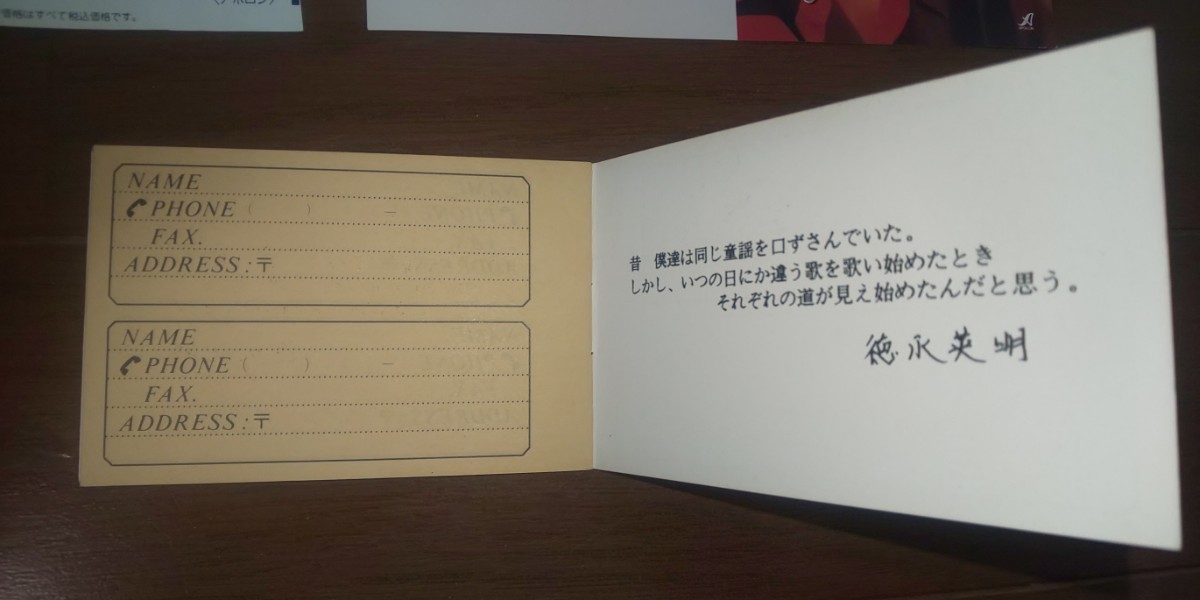 価格はすべて税込価格です。
NAME
PHONE ( ) −
FAX.
ADDRESS:〒
NAME
PHONE ( ) −
FAX.
ADDRESS:〒
昔 僕達は同じ童謡を口ずさんでいた。
しかし、いつの日にか違う歌を歌い始めたとき
それぞれの道が見え始めたんだと思う。
徳永英明